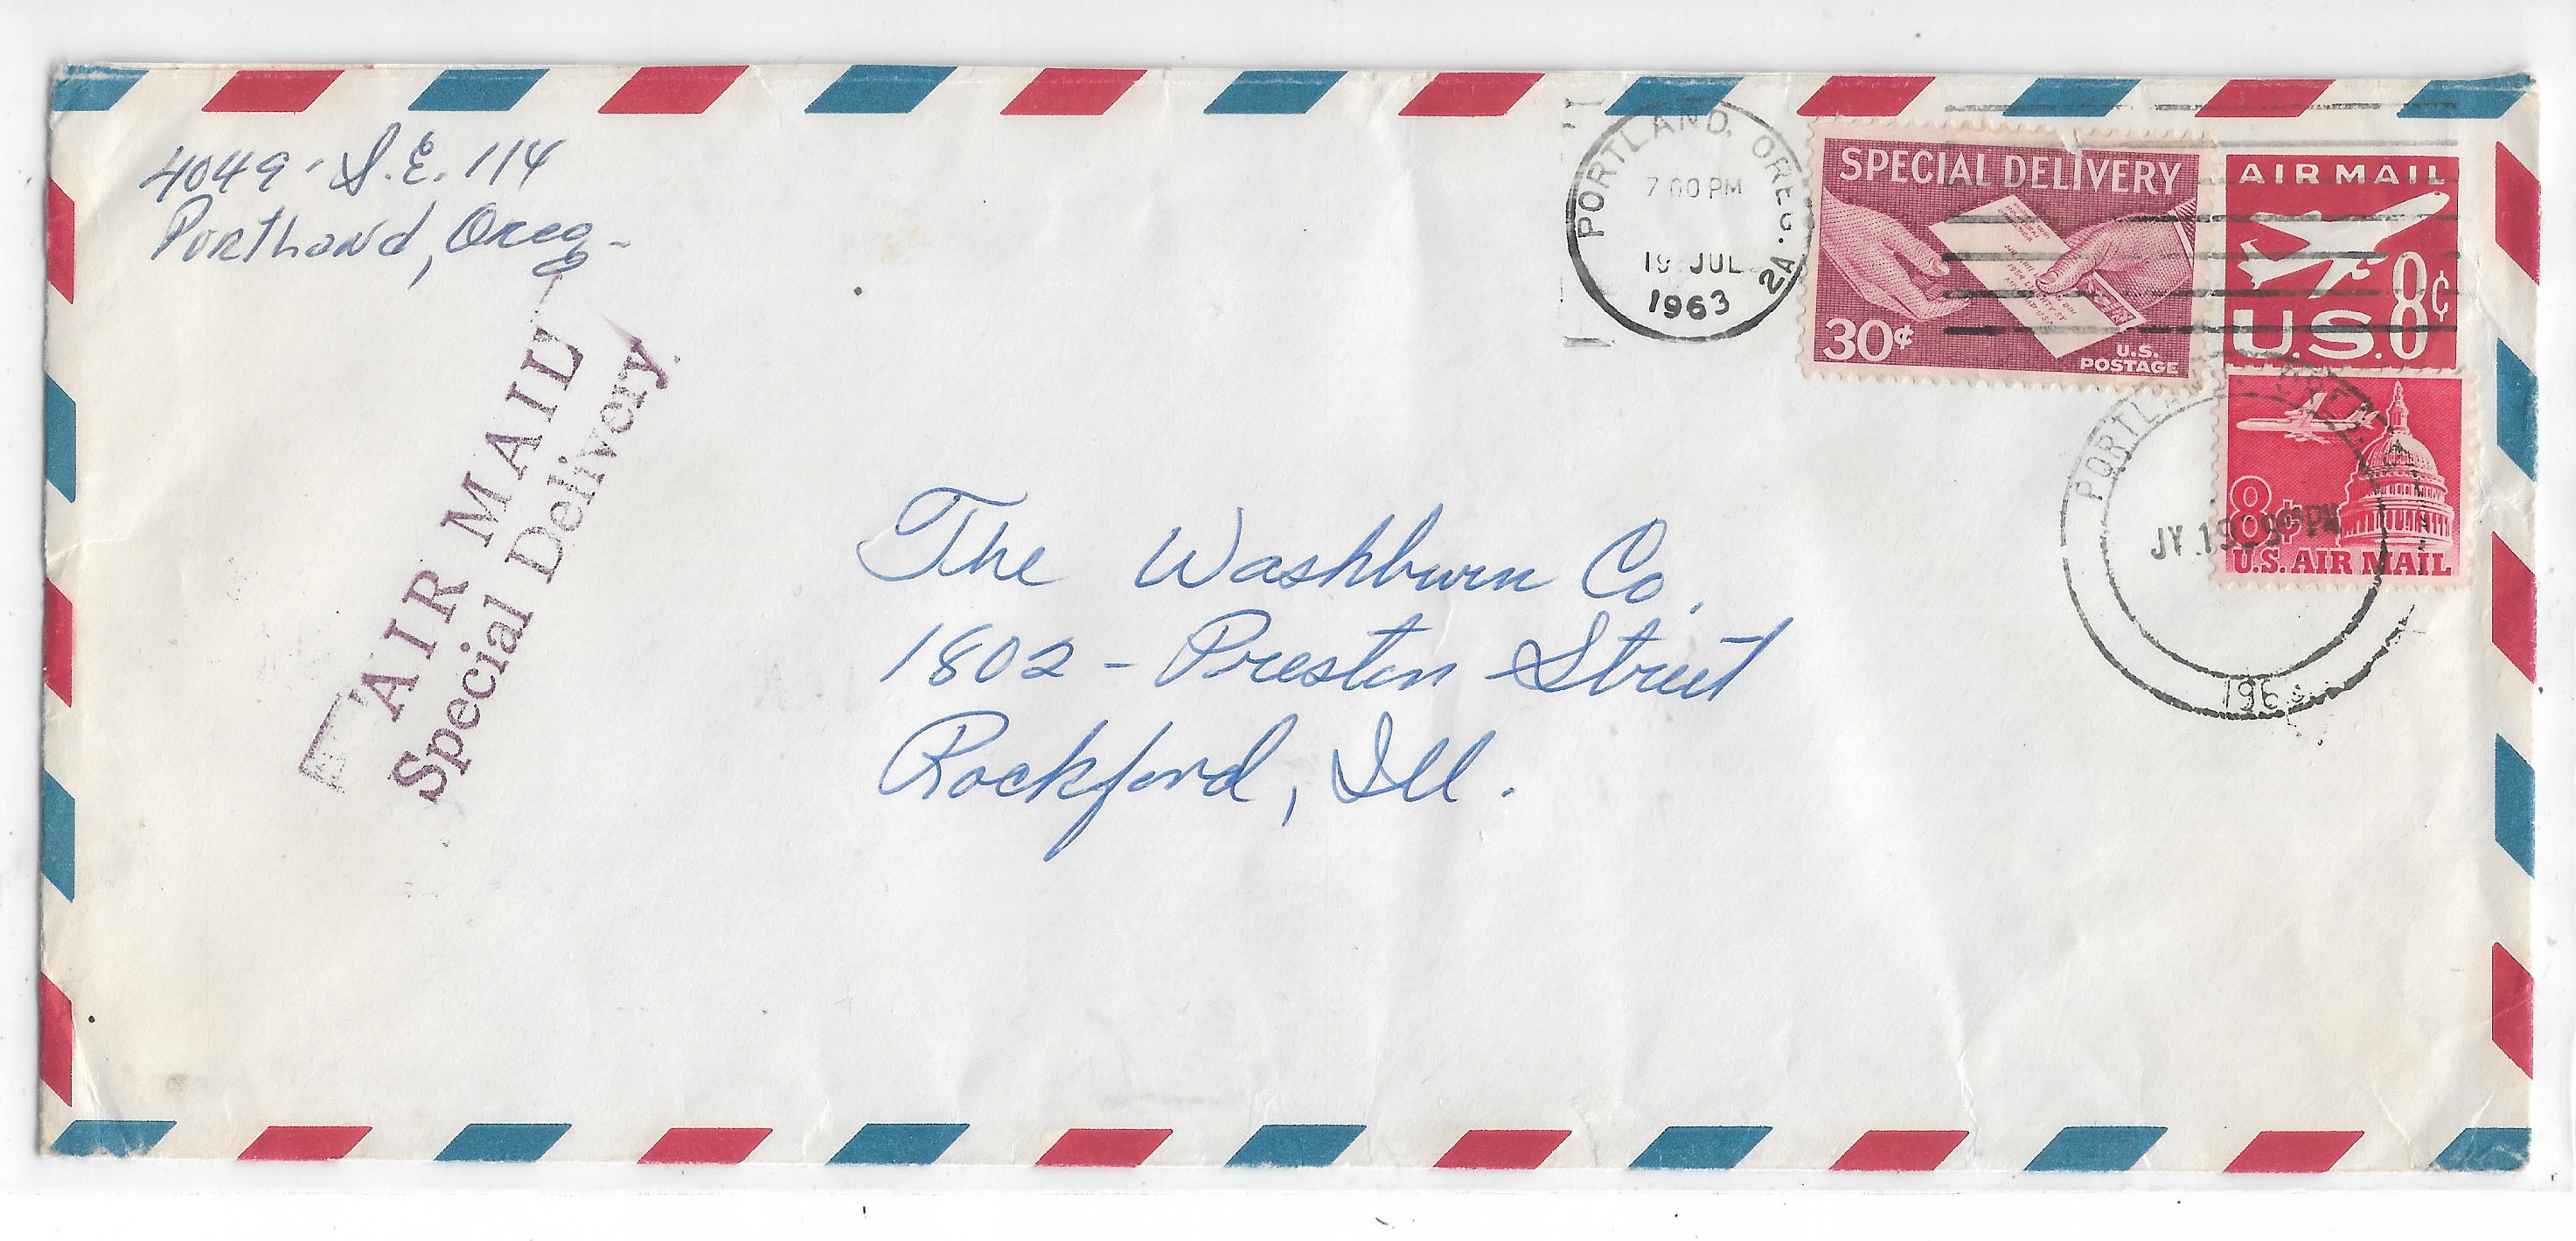 4049 - S.E. 114
Portland, Oreg -
AIR MAIL
Special Delivery
PORTLAND, OREG. 2A
7 00 PM
19 JUL
1963
SPECIAL DELIVERY
30¢
U.S.
POSTAGE
AIR MAIL
8¢
U.S.
8¢
U.S. AIR MAIL
PORTLAND
JY 19
PM
The Washburn Co.
1802 - Preston Street
Rockford, Ill.